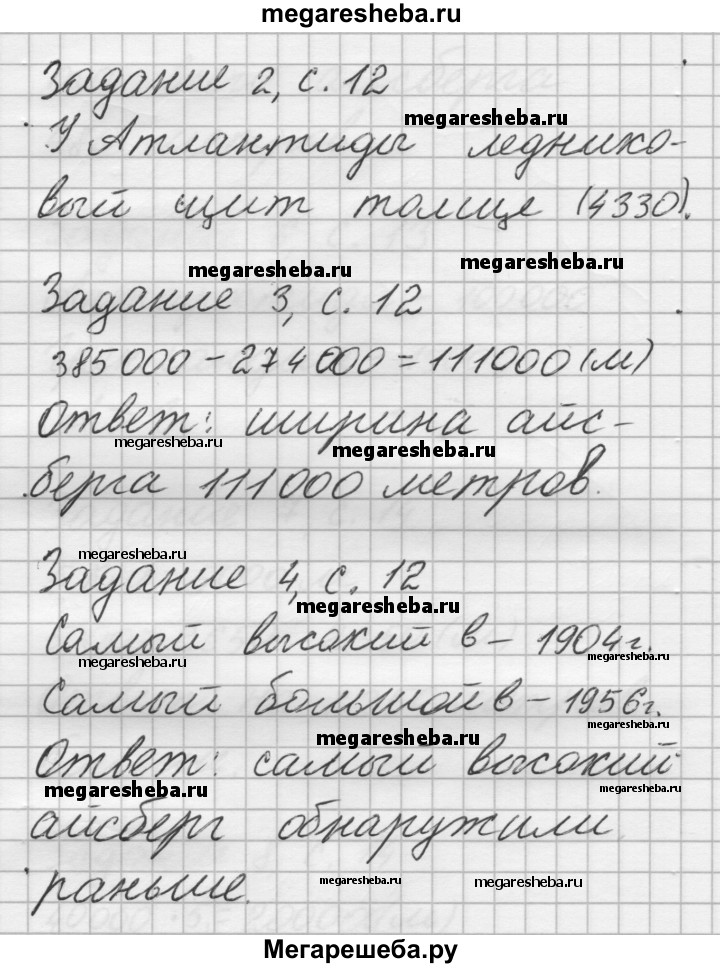 megaresheba.ru
Задание 2, с. 12
megaresheba.ru
У Атлантиды леднико-
вый щит толще (4330).
megaresheba.ru
megaresheba.ru
Задание 3, с. 12
385000 - 274000 = 111000 (м)
Ответ: ширина айс-
megaresheba.ru
megaresheba.ru
берга 111000 метров.
megaresheba.ru
Задание 4, с. 12
megaresheba.ru
Самый высокий в - 1904г.
megaresheba.ru
megaresheba.ru
Самый большой в - 1956г.
megaresheba.ru
megaresheba.ru
Ответ: самый высокий
megaresheba.ru
megaresheba.ru
айсберг обнаружили
раньше.
megaresheba.ru
megaresheba.ru
Мегарешеба.ру